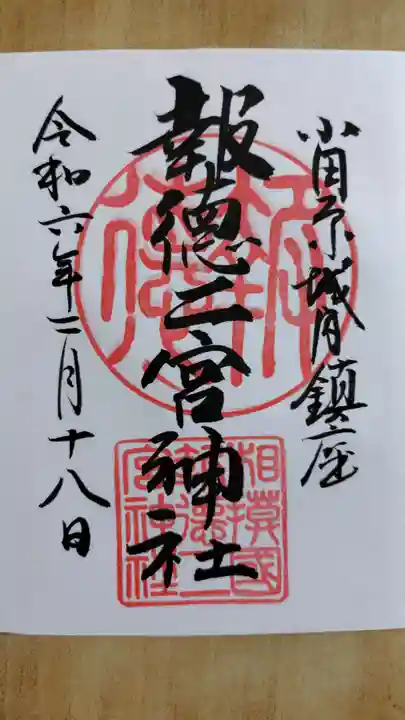 小田原城内鎮座
報徳二宮神社
令和六年二月十八日
相模國
報徳二
宮神社